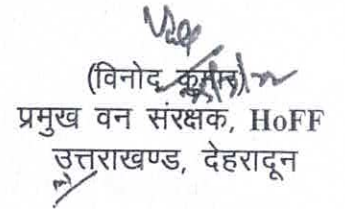 (विनोद कुमार)
प्रमुख वन संरक्षक, HoFF
उत्तराखण्ड, देहरादून